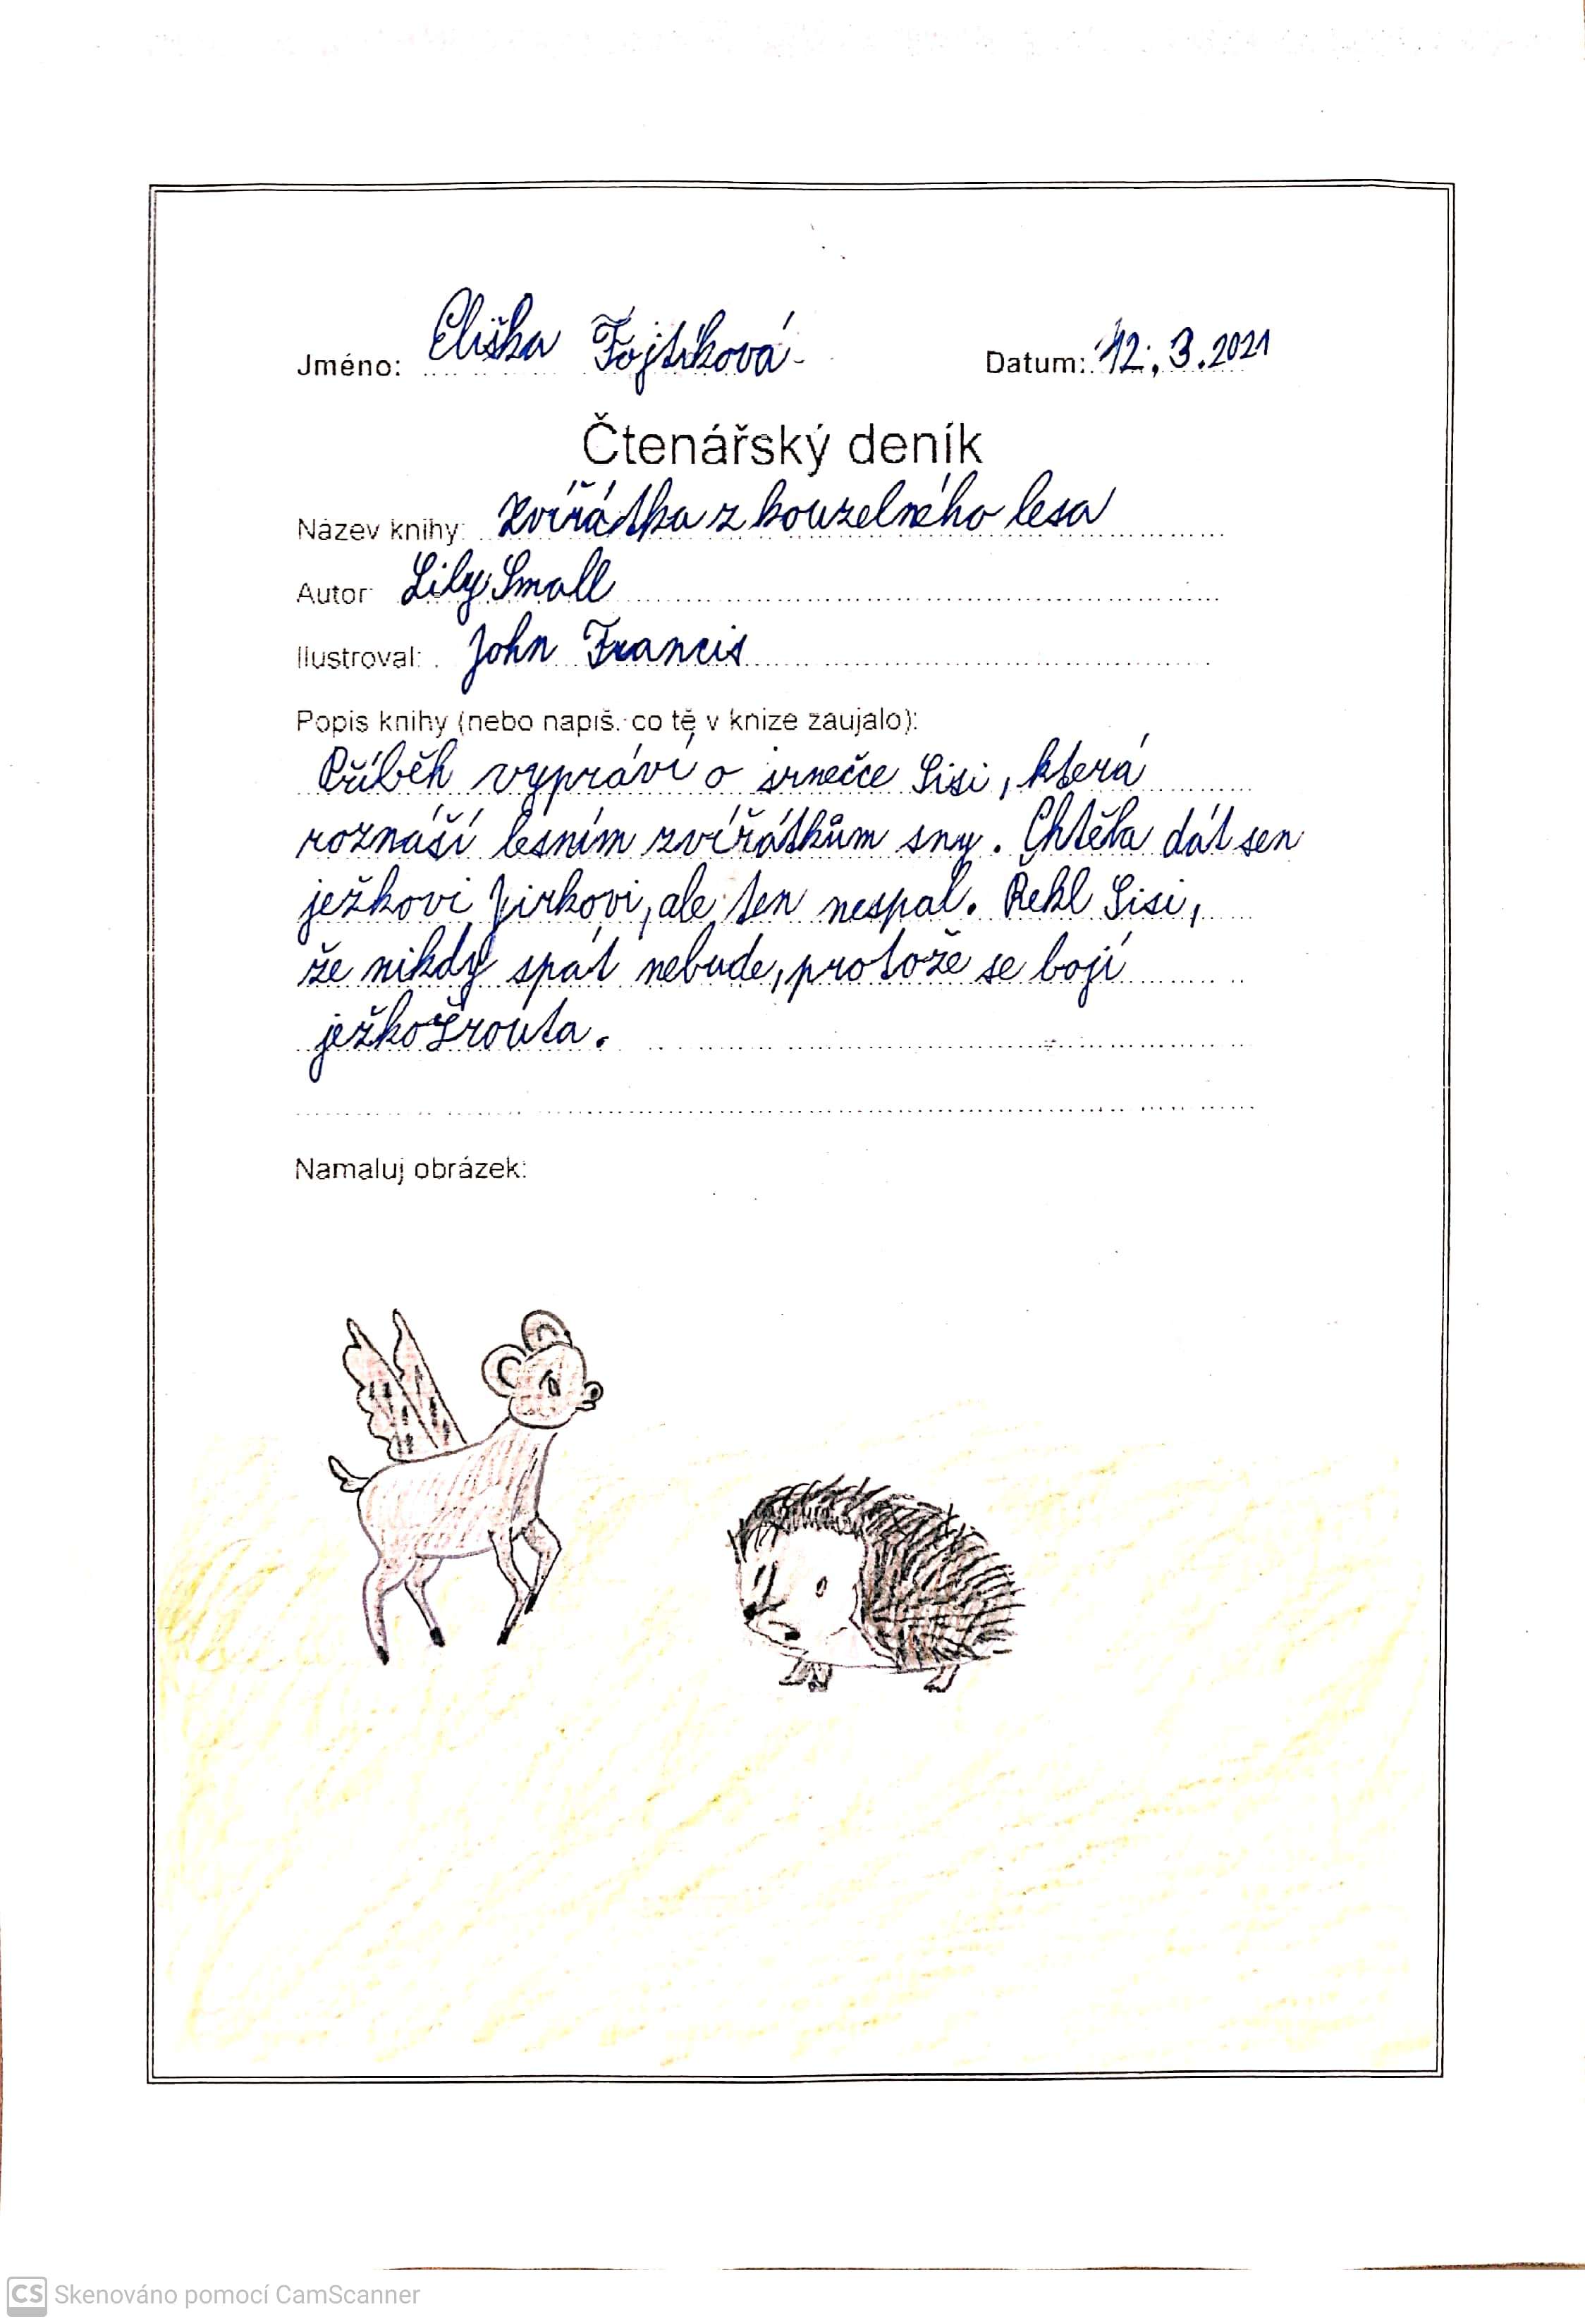 Jméno: Eliška Fojtíková Datum: 12. 3. 2021
Čtenářský deník
Název knihy: Zvířátka z kouzelného lesa
Autor: Lily Small
Ilustroval: John Francis
Popis knihy (nebo napiš. co tě v knize zaujalo):
Příběh vypráví o srnečce Sisi, která
roznáší lesním zvířátkům sny. Chtěla dát sen
ježkovi Jirkovi, ale ten nespal. Řekl Sisi,
že nikdy spát nebude, protože se bojí
ježkožrouta.
Namaluj obrázek:
CS Skenováno pomocí CamScanner